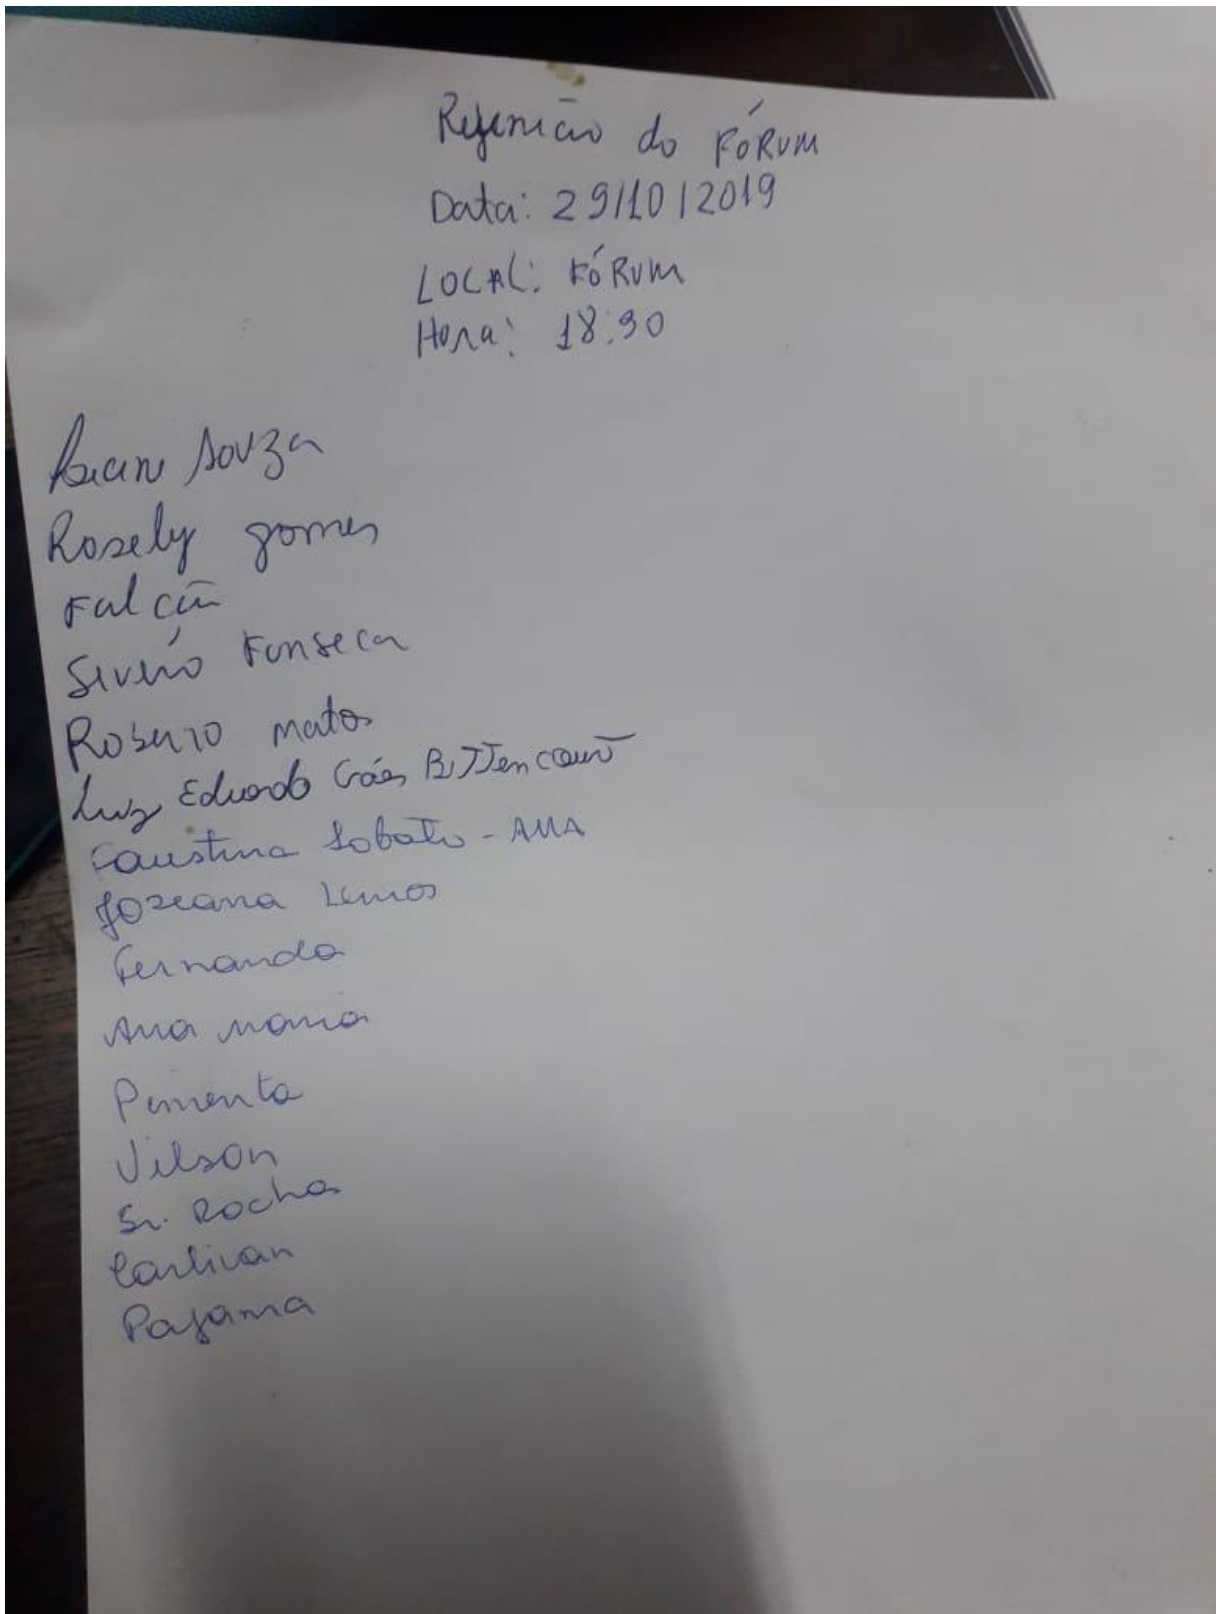 Reunião do FÓRUM
Data: 29/10/2019
LOCAL: FÓRUM
Hora: 18:30
Souza
Rosely gomes
Falcão
Fonseca
matos
Luiz Eduardo Góes Bittencourt
Faustina Lobato - AMA
Lemos
Fernanda
Ana maria
Pimenta
Vilson
Sr. Rocha
Carlivan